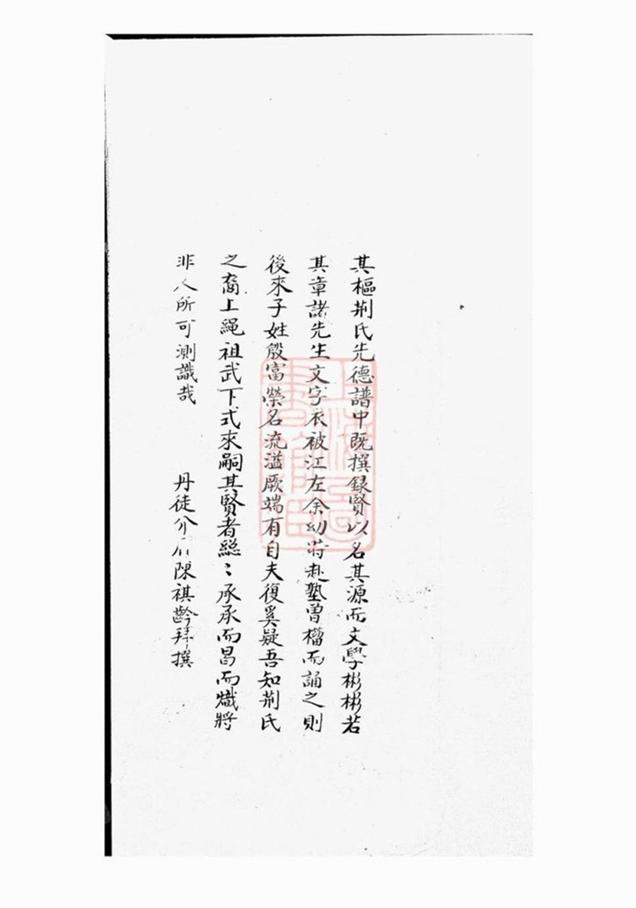 其樞荆氏先德譜中既撰録賢以名其源而文學彬彬若
其章諸先生文字衣被江左余幼時赴塾曾檀而誦之則
後來子姓殷富榮名流溢厥端有自夫復奚疑吾知荆氏
之裔上繩祖武下式來嗣其賢者繩〻承承而昌而熾將
非人所可測識哉
丹徒介石陳祺齡拜撰